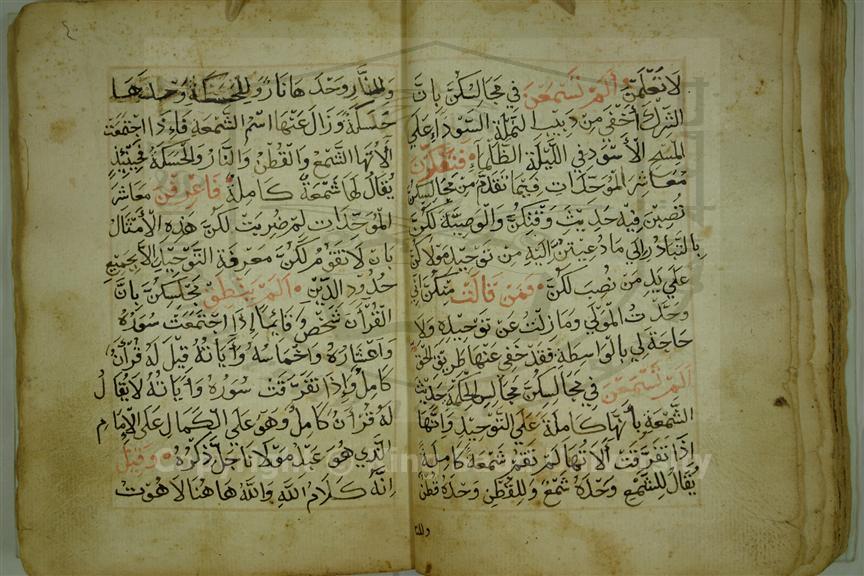 لا تعلمن وألم تسمعن في مجالسكن بان
الشرك أخفى من دبيب النملة السوداء على
المسح الأسود في الليلة الظلماء فتفكرن
معاشر الموحدات فيما تقدم من مجالسكن
نصبن فيه حديث وقتكن والوصية لكن
بالتبادر الى ما دعيتن إليه من توحيد مولاكن
على يد من نصب لكن ومن قالت منكن اني
وحدت المولى وما زلت عن توحيده ولا
حاجة لي بالواسطة فقد خفي عنها طريق الحق
ألم تسمعن في مجالسكن مجالس الحكمة حديث
الشمعة بأنها كاملة على التوحيد وانها
إذا تفرقت ألاتها لم تقم شمعة كاملة
يقال للشمع وحده شمع وللقطن وحده قطن
وللنا
وللنار وحدها نار وللحسكة وحدها
حسكة وزال عنها اسم الشمعة فاءذا اجتمعت
ألاتها الشمع والقطن والنار والحسكة فحينئذ
يقال لها شمعة كاملة فاعرفن معاشر
الموحدات لم ضربت لكن هذه الأمثال
بان لا تقوم لكن معرفة التوحيد الا بجميع
حدود الدين ألم ينطق مجلسكن بان
القرأن شخص وقايما إذا اجتمعت سوره
واعشاره واخماسه وأياته قيل له قرأن
كامل وإذا تفرقت سوره وأياته لا يقال
له قرأن كامل وهو على الكمال على الإمام
الذي هو عبد مولانا جل ذكره وقيل
انه كلام الله والله هاهنا لاهوت